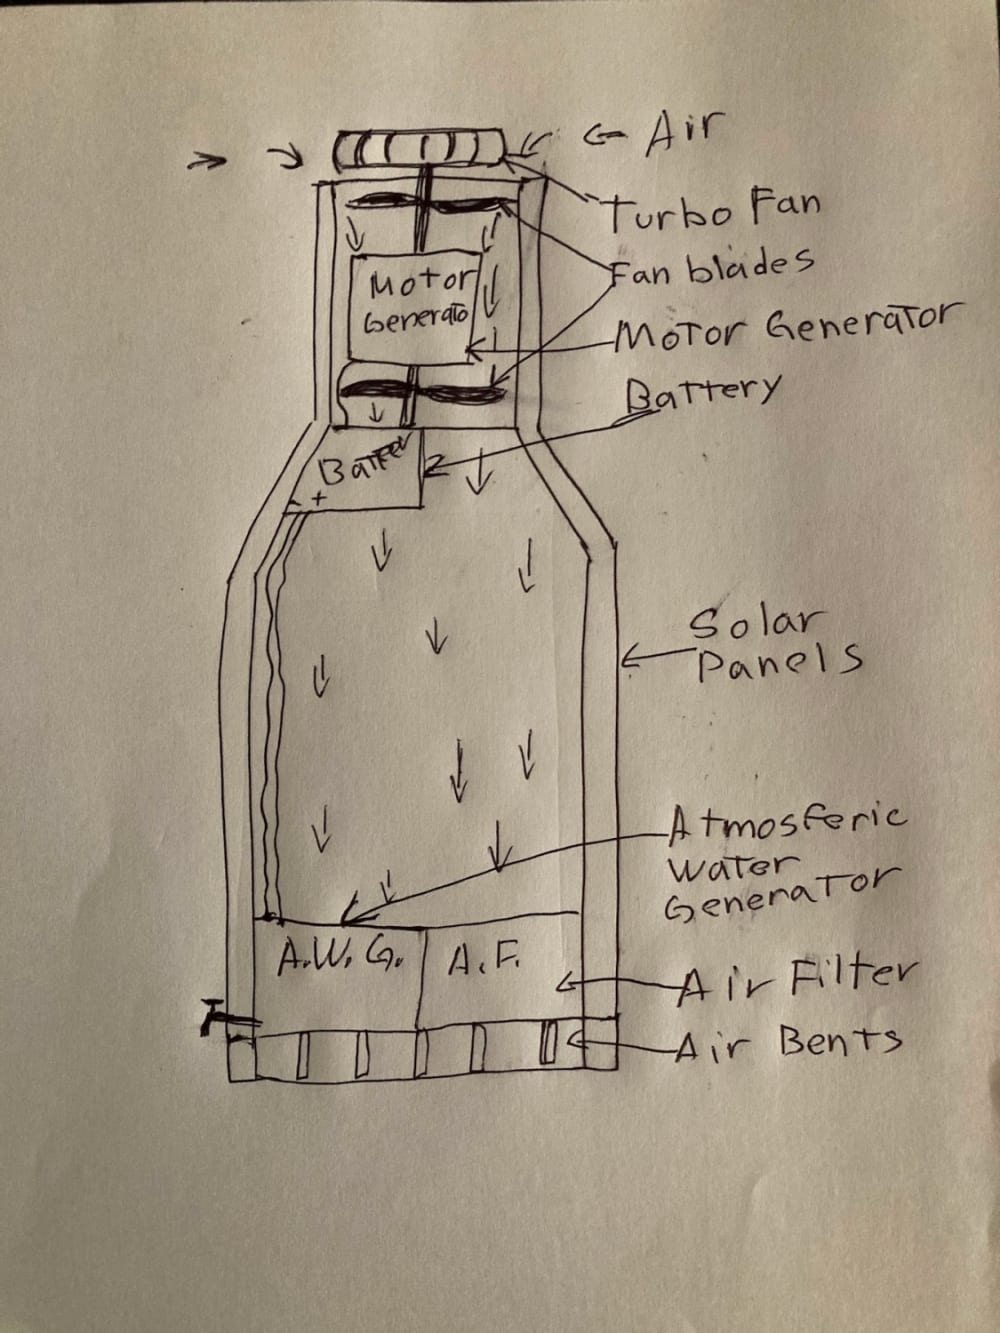 Air
Turbo Fan
Fan blades
Motor
Generato
Motor Generator
Battery
Batter
- +
Solar
Panels
Atmosferic
Water
Generator
A.W.G.
A.F.
Air Filter
Air Bents